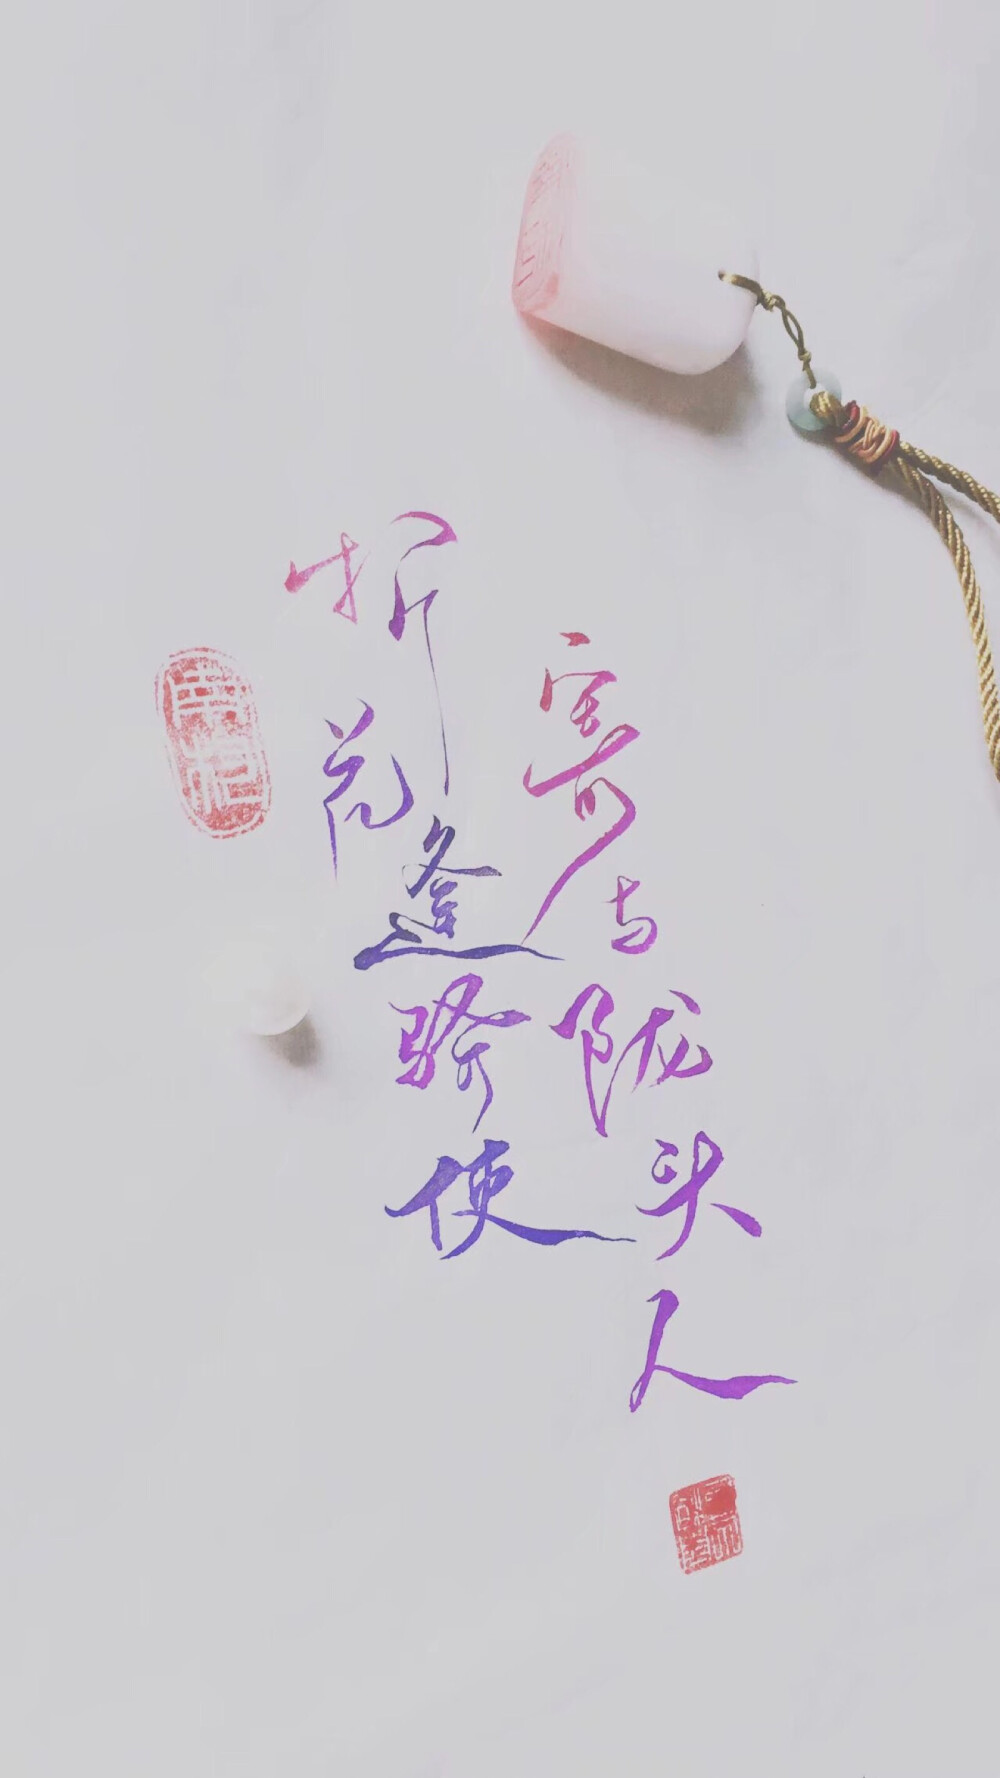 折花逢驿使
寄与陇头人